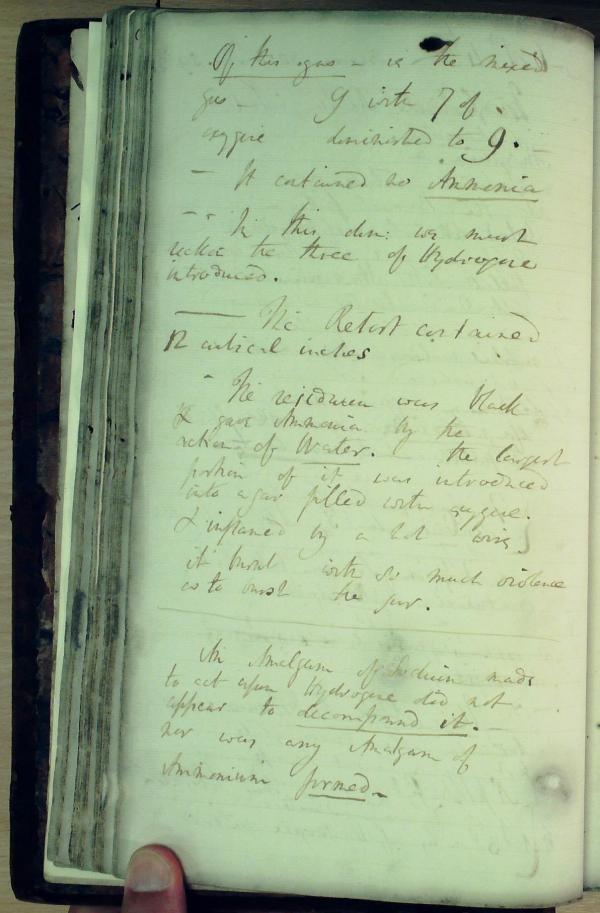 Of this gas - is the mixed
gas - 9 with 7 of
oxygene diminished to 9.
- It contained no Ammonia
- - In this we must
reckon the three of Hydrogene
introduced.
— The Retort contained
12 cubical inches
- The residuum was black
& gave Ammonia by the
action of Water. The largest
portion of it was introduced
into a jar filled with oxygene.
& inflamed by a hot wire
it burnt with so much violence
as to burst the jar.
An Amalgam of Sodium made
to act upon Hydrogene did not
appear to decompound it.
nor was any Amalgam of
Ammonium formed.